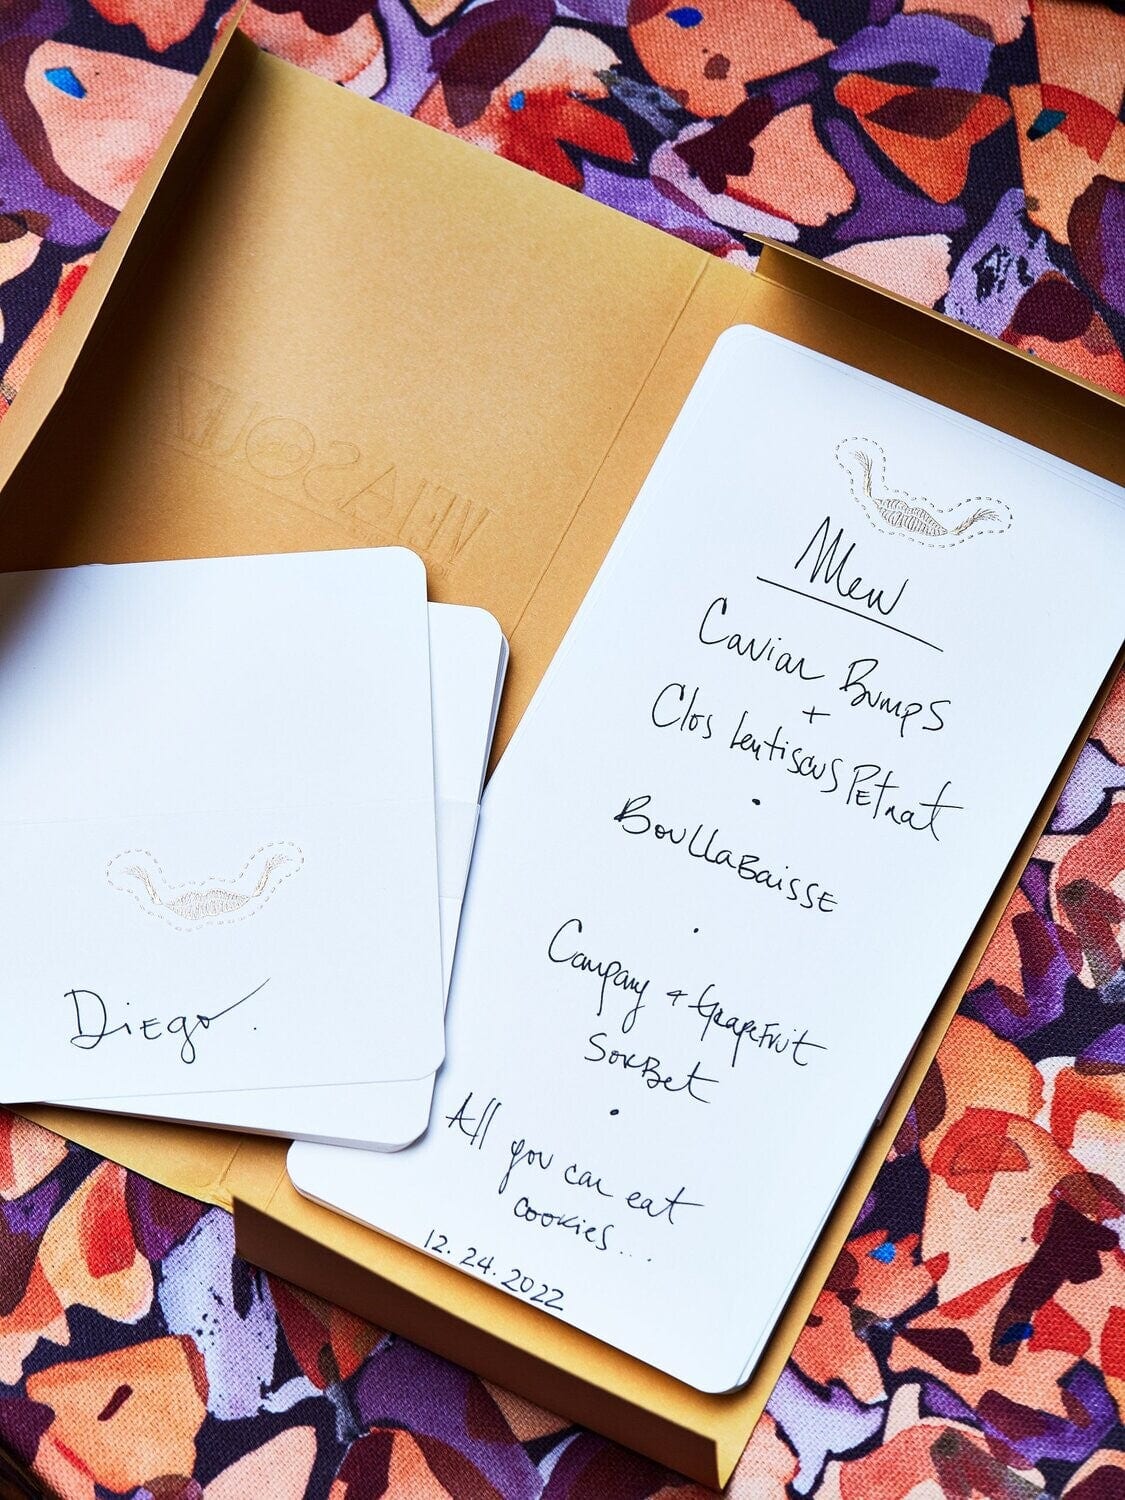 VELASQUEZ
Menu
Caviar Bumps
+
Clos Lentiscus Petnat
•
Boullabaisse
•
Company + Grapefruit
Sorbet
•
All you can eat
cookies...
12.24.2022
Diego.